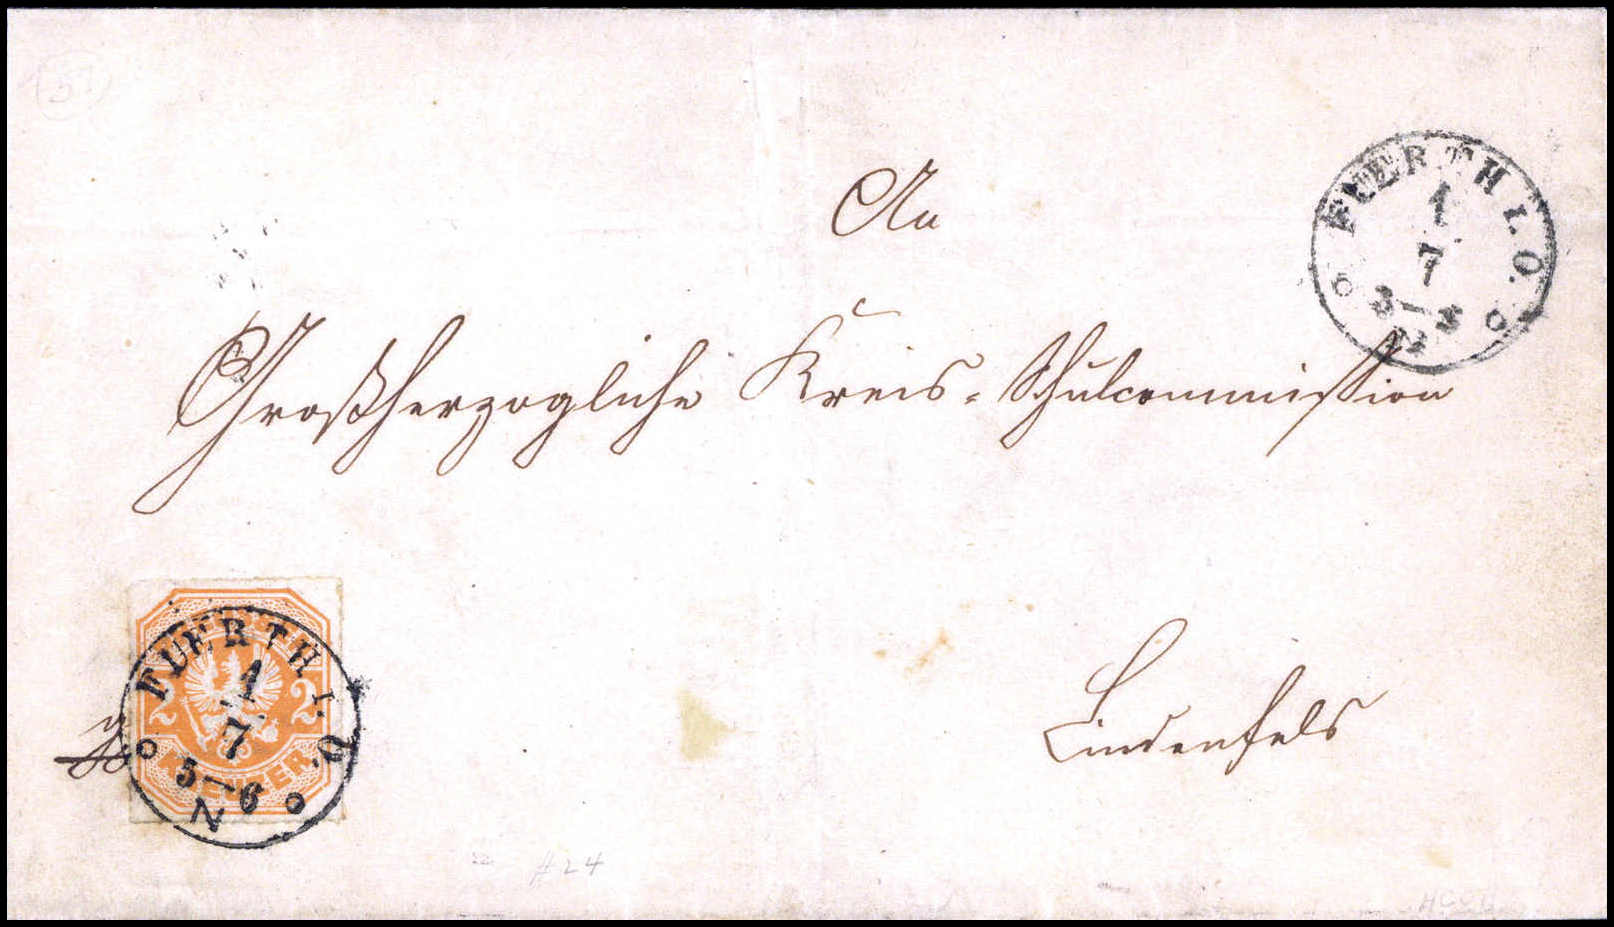 FUERTH I. O.
1
7
3—5
N
An
Großherzogliche Kreis-Schulcommission
Lindenfels
2 2
KREUZER
FUERTH I. O.
1
7
5—6
N
#24